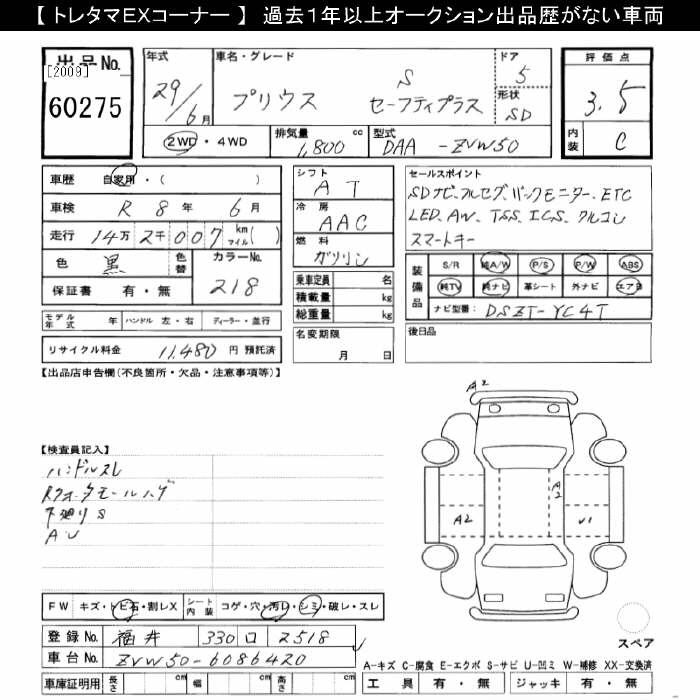 【 トレタマEXコーナー 】 過去1年以上オークション出品歴がない車両
出品No.
[2009]
60275
年式
29/6月
車名・グレード
プリウス S セーフティプラス
ドア
5
形状
SD
評価点
3.5
内装
C
2WD・4WD
排気量 1,800 cc
型式 DAA -ZVW50
車歴 自家用・( )
車検 R 8 年 6 月
走行 14万 2千 007 km マイル( )
色 黒
色替
カラーNo. 218
保証書 有・無
モデル年式 年 ハンドル 左・右 ディーラー・並行
リサイクル料金 11,480 円 預託済
シフト
AT
冷房
AAC
燃料
ガソリン
乗車定員 名
積載量 kg
総重量 kg
名変期限
月 日
セールスポイント
SDナビ、フルセグ、バックモニター、ETC
LED、AW、TSS、ICS、クルコン
スマートキー
装備品
S/R 純A/W P/S P/W ABS
純TV 純ナビ 革シート 外ナビ エアB
ナビ型番: DSZT-YC4T
後日品
【出品店申告欄(不良箇所・欠品・注意事項等)】
【検査員記入】
ハンドルスレ
Rクォータモールハゲ
下廻りS
AU
A2
A2
A2
U1
スペア
FW キズ・トビ石・割レX
シート内装 コゲ・穴・汚レ・シミ・破レ・スレ
登録No. 福井 330 ロ 2518
車台No. ZVW50-6086420
車庫証明用 長さ cm 幅 cm 高さ cm
A-キズ C-腐食 E-エクボ S-サビ U-凹ミ W-補修 XX-交換済
工具 有・無 ジャッキ 有・無